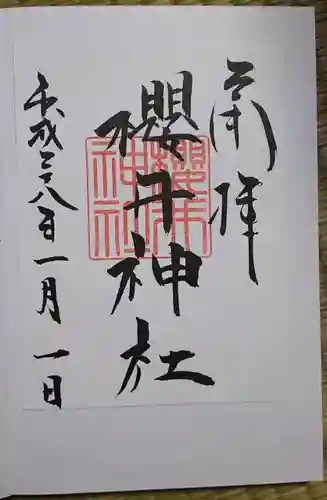 奉拝
櫻井神社
櫻井
神社
平成二八年一月一日